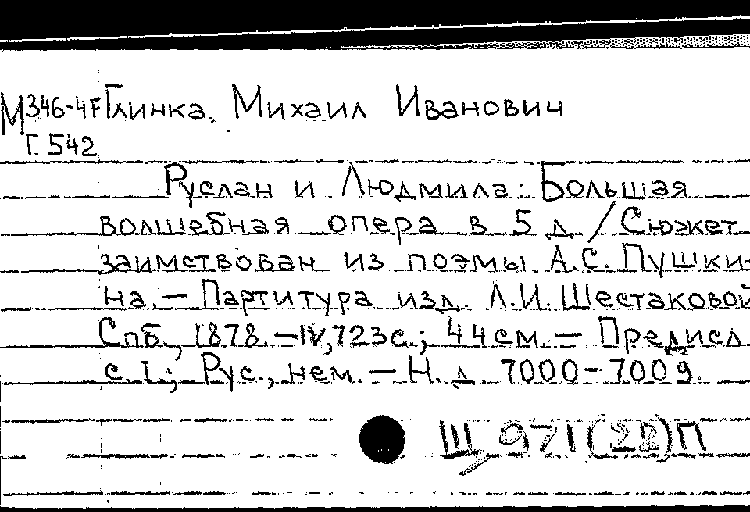 М346-4F Глинка, Михаил Иванович
Г. 542
Руслан и Людмила: Большая
волшебная опера в 5 д. / Сюжет
заимствован из поэмы А.С. Пушки-
на. — Партитура изд. Л.И. Шестаковой
Спб., 1878. — IV, 723 с.; 44 см. — Предисл.
с. I.; Рус., нем. — Н. д. 7000-7009.
Щ 971(22)П